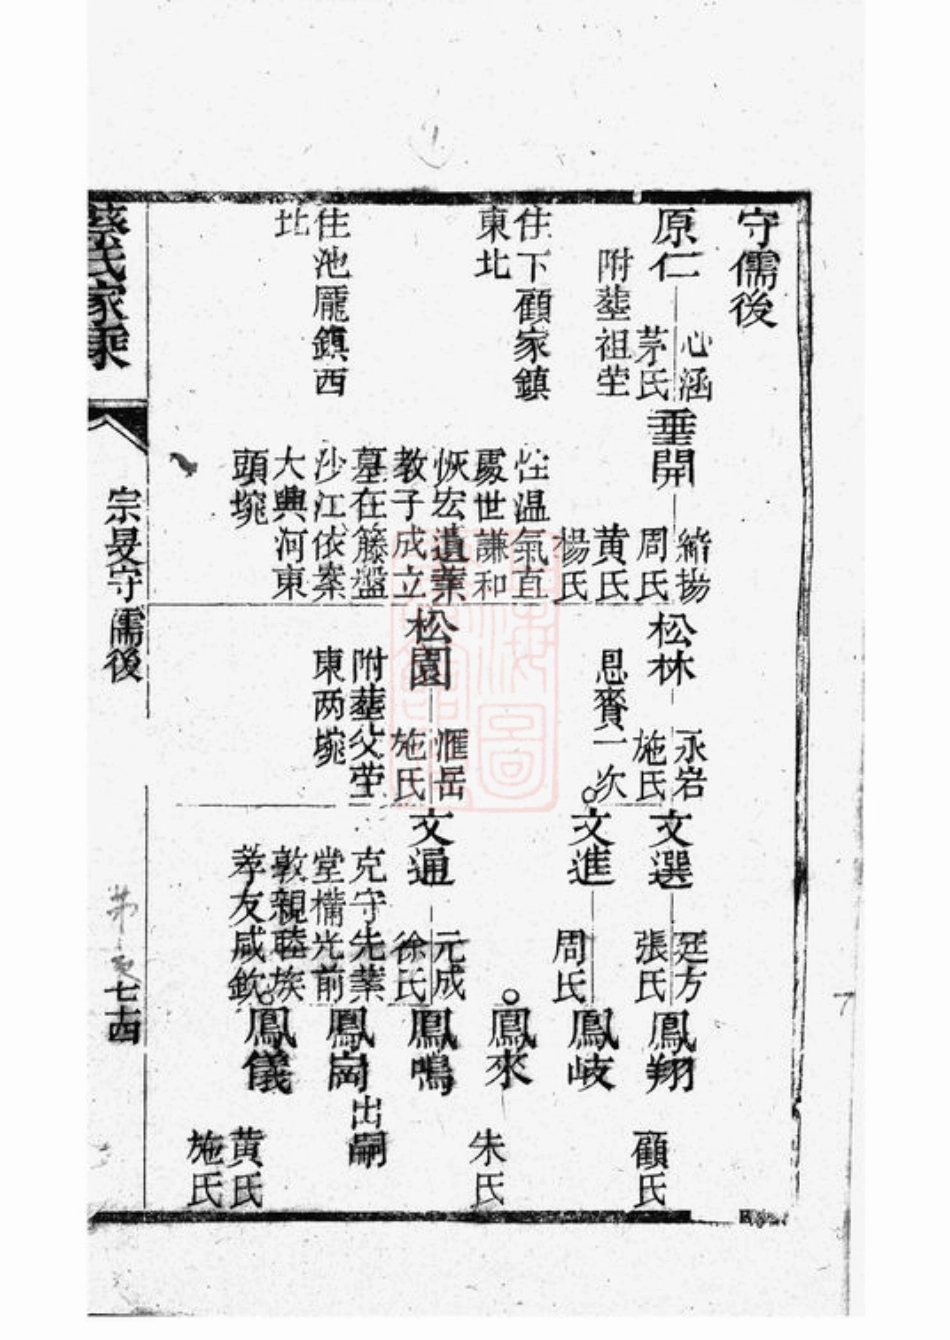 守儒後
原仁
心涵
茅氏
附塟祖茔
住下顧家鎮
東北
住池厐鎮西
北
垂開
緒揚
周氏
黄氏
楊氏
性温氣直
處世謙和
恢宏遺業
教子成立
墓在籐盤
沙江依案
大興河東
頭塊
松林
永岩
施氏
恩賚一次
松園
滙岳
施氏
附塟父茔
東两塊
文選
廷方
張氏
文進
周氏
文通
元成
徐氏
克守先業
堂構光前
敦親睦族
孝友咸欽
鳳翔
顧氏
鳳岐
鳳來
朱氏
鳳鳴
鳳岡
出嗣
鳳儀
黄氏
施氏
蔡氏家乘
宗旻守儒後
七十四